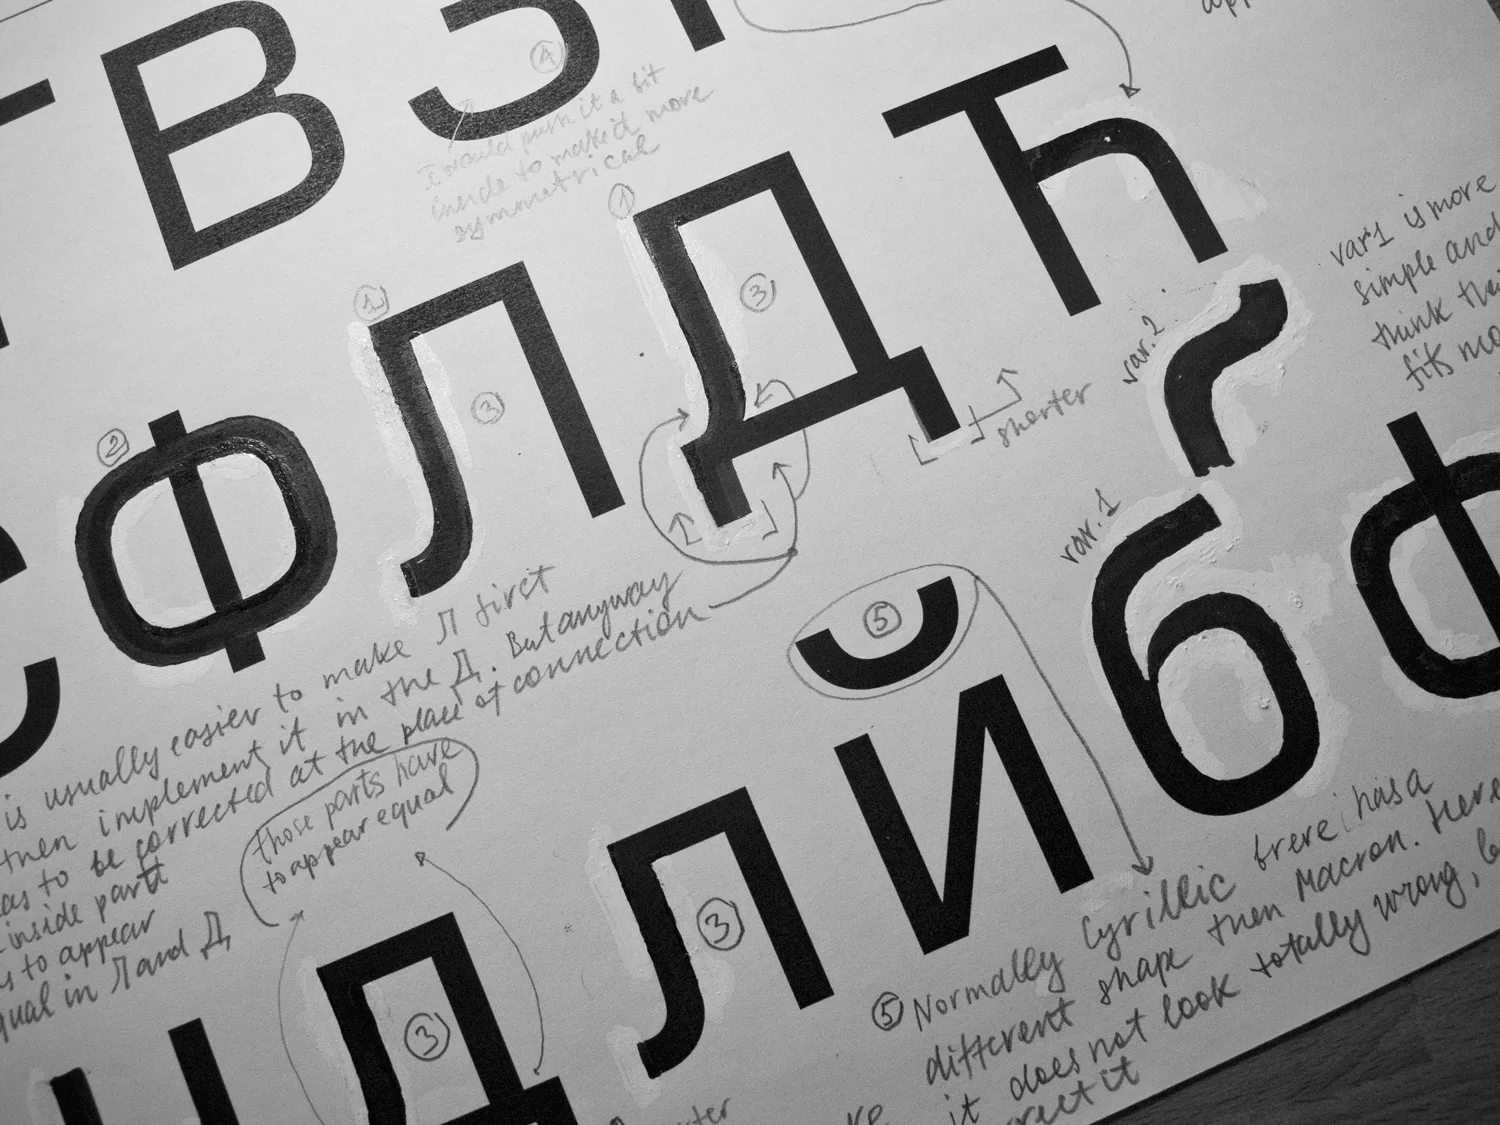 В З
④
I would push it a bit
inside to make it more
symmetrical
① ①
Ф Л Д Ћ
② ③ ③
shorter
var. 2
var1 is more
simple and
think
fits
var. 1
й б ф
⑤
is usually easier to make Л first
then implement it in the Д. But anyway
to be corrected at the place of connection
inside parts
to appear
in Л and Д
those parts have
to appear equal
Д Л
③ ③
⑤ Normally Cyrillic breve has a
different shape then Macron. Here
it does not look totally wrong,
it